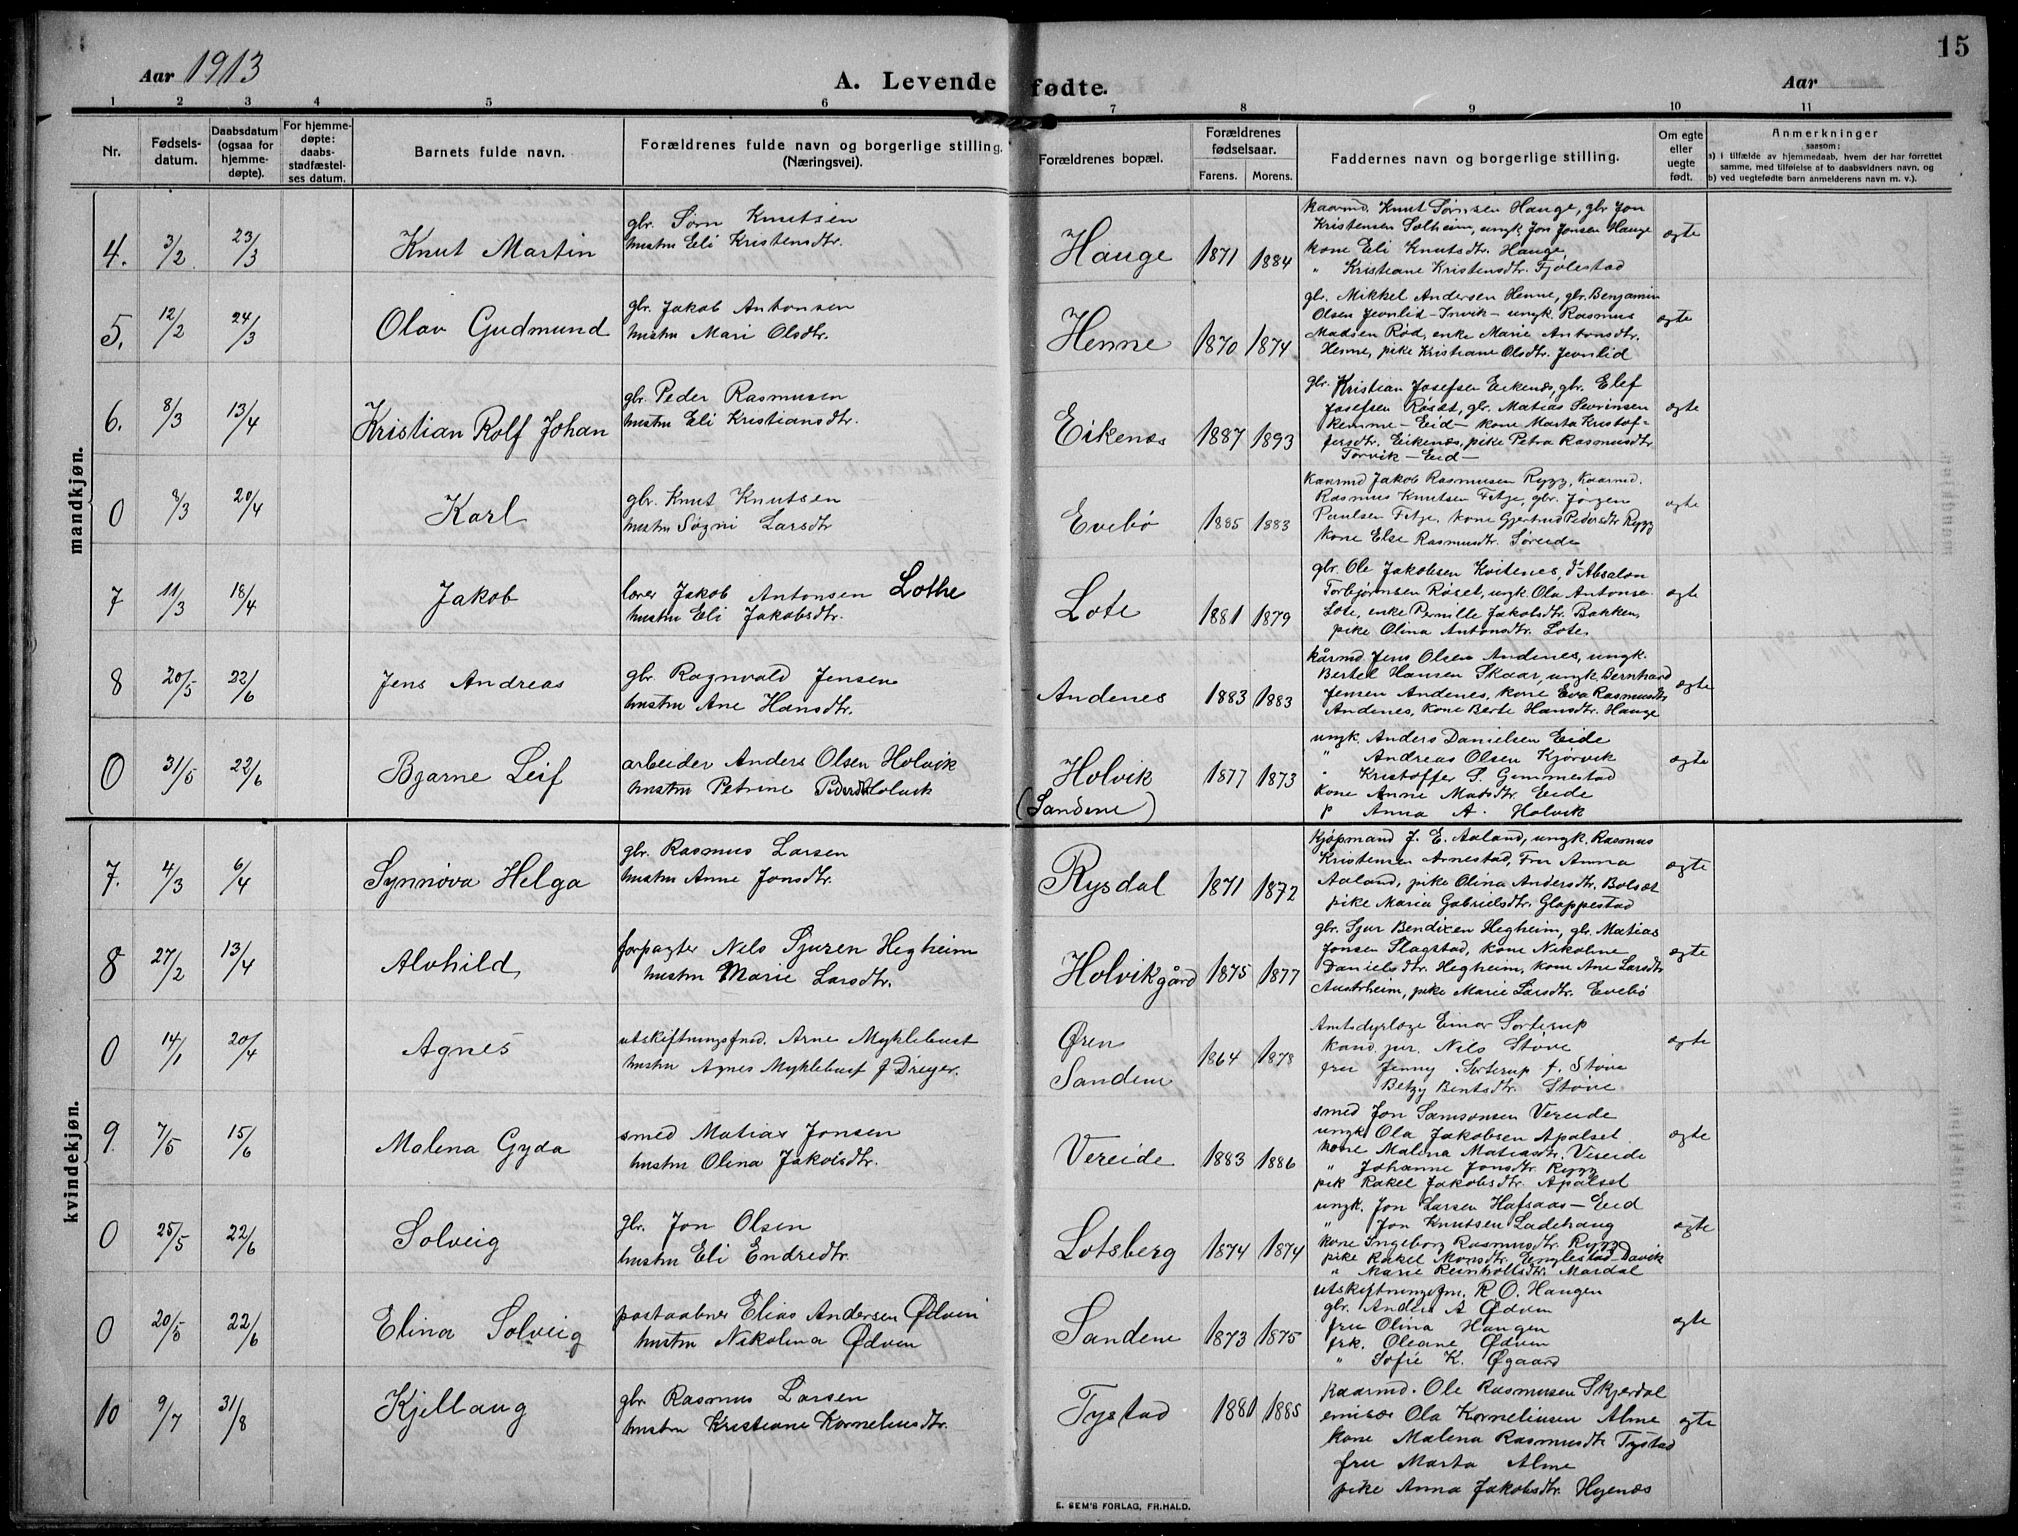 Aar 1913
A. Levende fødte.
Aar
15
1 2 3 4 5 6 7 8 9 10 11
Nr.
Fødsels-
datum.
Daabsdatum
(ogsaa for
hjemme-
døpte).
For hjemme-
døpte:
daabs-
stadfæstel-
ses datum.
Barnets fulde navn.
Forældrenes fulde navn og borgerlige stilling.
(Næringsvei).
Forældrenes bopæl.
Forældrenes
fødselsaar.
Farens. Morens.
Faddernes navn og borgerlige stilling.
Om egte
eller
uegte
født.
Anmerkninger
saasom:
a) i tilfælde av hjemmedaab, hvem der har forrettet
samme, med tilføielse af to daabsvidners navn, og
b) ved uegtefødte barn anmelderens navn m. v.).
mandkjøn.
4. 3/2 23/3 Knut Martin
gbr Sørn Knutsen
hustru Eli Kristensdtr.
Hauge 1871 1884
kaarmd. Knut Sørnsen Hauge, gbr Jon
Kristensen Solheim, ungk. Jon Jonsen Hauge
kone Eli Knutsdtr. Hauge,
" Kristiane Kristensdtr. Fjölestad
ægte
5. 12/2 24/3 Olav Gudmund
gbr. Jakob Antonsen
hustru Mari Olsdtr.
Henne 1870 1874
gbr. Mikkel Andersen Henne, gbr. Benjamin
Olsen Jevnlid - Invik - ungk Rasmus
Madsen Rød, enke Marie Antonsdtr.
Henne, pike Kristiane Olsdtr. Jevnlid
ægte
6. 8/3 13/4 Kristian Rolf Johan
gbr. Peder Rasmusen
hustru Eli Kristiansdtr.
Eikenæs 1887 1893
gbr. Kristian Josefsen Eikenæs, gbr. Elef
Josefsen Røset, gbr. Matias Sevrinsen
Kemme - Eid - kone Marta Kristof-
fersdtr. Eikenæs, pike Petra Rasmusdtr
Torvik - Eid -
ægte
0 8/3 20/4 Karl
gbr. Knut Knutsen
hustru Søgni Larsdtr
Evebø 1885 1883
Kaarmd Jakob Rasmusen Rygg, Kaarmd.
Rasmus Knutsen Fitje, gbr. Jørgen
Paulsen Fitje, kone Gjertrud Pedersdtr Rygg
kone Else Rasmusdtr. Søreide
ægte
7 11/3 18/4 Jakob
lærer Jakob Antonsen Lothe
hustru Eli Jakobsdtr.
Lote 1881 1879
gbr. Ole Jakobsen Kvitenes, do Absalon
Torbjørnsen Røset, ungk. Ola Antonse-
Lote, enke Pernille Jakobsdtr. Bakken,
pike Olina Antonsdtr. Lote.
ægte
8 20/5 22/6 Jens Andreas
gbr. Ragnvald Jensen
hustru Ane Hansdtr.
Andenes 1883 1883
kårmd. Jens Olsen Andenes, ungk.
Bertel Hansen Skaar, ungk. Bernhard
Jensen Andenes, kone Eva Rasmusdtr
Andenes, kone Berte Hansdtr. Hauge
ægte
0 31/5 22/6 Bjarne Leif
arbeider Anders Olsen Holvik
hustru Petrine Pedersdtr Holvik
Holvik
(Sandene) 1877 1873
ungk. Anders Danielsen Eide
" Andreas Olsen Kjørvik
" Kristoffer S. Gimmestad
kone Anne Madsdtr. Eide
p Anna A. Holvik
ægte
kvindekjøn.
7. 4/3 6/4 Synnøva Helga
gbr. Rasmus Larsen
hustru Anne Jonsdtr.
Rysdal 1871 1872
Kjøpmand J. E. Aaland, ungk. Rasmus
Kristensen Arnestad, Fru Anna
Aaland, pike Olina Andersdtr. Bolsæt
pike Maria Gabrielsdtr. Gloppestad
ægte
8 27/2 13/4 Alvhild
forpagter Nils Sjursen Hegheim
hustru Marie Larsdtr.
Holvikgård 1875 1877
gbr. Sjur Bendixen Hegheim, gbr. Matias
Jonsen Slagstad, kone Nikoline
Danielsdtr. Hegheim, kone Ane Larsdtr
Austrheim, pike Marie Larsdtr. Evebø
ægte
0 14/1 20/4 Agnes
utskiftningsfmd. Arne Myklebust
hustru Agnes Myklebust f Dreyer.
Øren
Sandene 1864 1878
Amtsdyrlæge Einar Sørterup
kand. jur. Nils Støve
fru Jenny Sørterup f. Støve
Betzy Bentsdtr. Støve
ægte
9. 7/5 15/6 Malena Gyda
smed Matias Jonsen
hustru Olina Jakobsdtr.
Vereide 1883 1886
smed Jon Samsonsen Vereide
ungk Ola Jakobsen Apalset.
kone Malena Matiasdtr. Vereide
" Johanne Jonsdtr. Rygg
pik Rakel Jakobsdtr. Apalset
ægte
0 25/5 22/6 Solveig
gbr. Jon Olsen
hustru Eli Endredtr.
Lotsberg 1874 1874
ungk. Jon Larsen Hafsaas - Eid
" Jon Knutsen Ladehaug
kone Ingeborg Rasmusdtr. Rygg
pike Rakel Monsdtr. Englestad - Davik
" Marie Reinholtsdtr. Mardal
ægte
0 20/5 22/6 Elina Solveig
postaabner Elias Andersen Ødven
hustru Nikolina Ødven
Sandene 1873 1875
utskiftningsfm. R. O. Haugen
gbr. Anders A Ødven
fru Olina Haugen
frk. Oleane Ødven
" Sofie K. Øgaard
ægte
10 9/7 31/8 Kjellaug
gbr Rasmus Larsen
hustru Kristiane Korneliusdtr.
Tystad 1881 1885
kaarmd. Ole Rasmusen Skjerdal
emisær Ola Korneliusen Alme
kone Malena Rasmusdtr Tystad
fru Marta Alme
pike Anna Jakobsdtr Hyenæs
ægte
E. SEM'S FORLAG, FR.HALD.